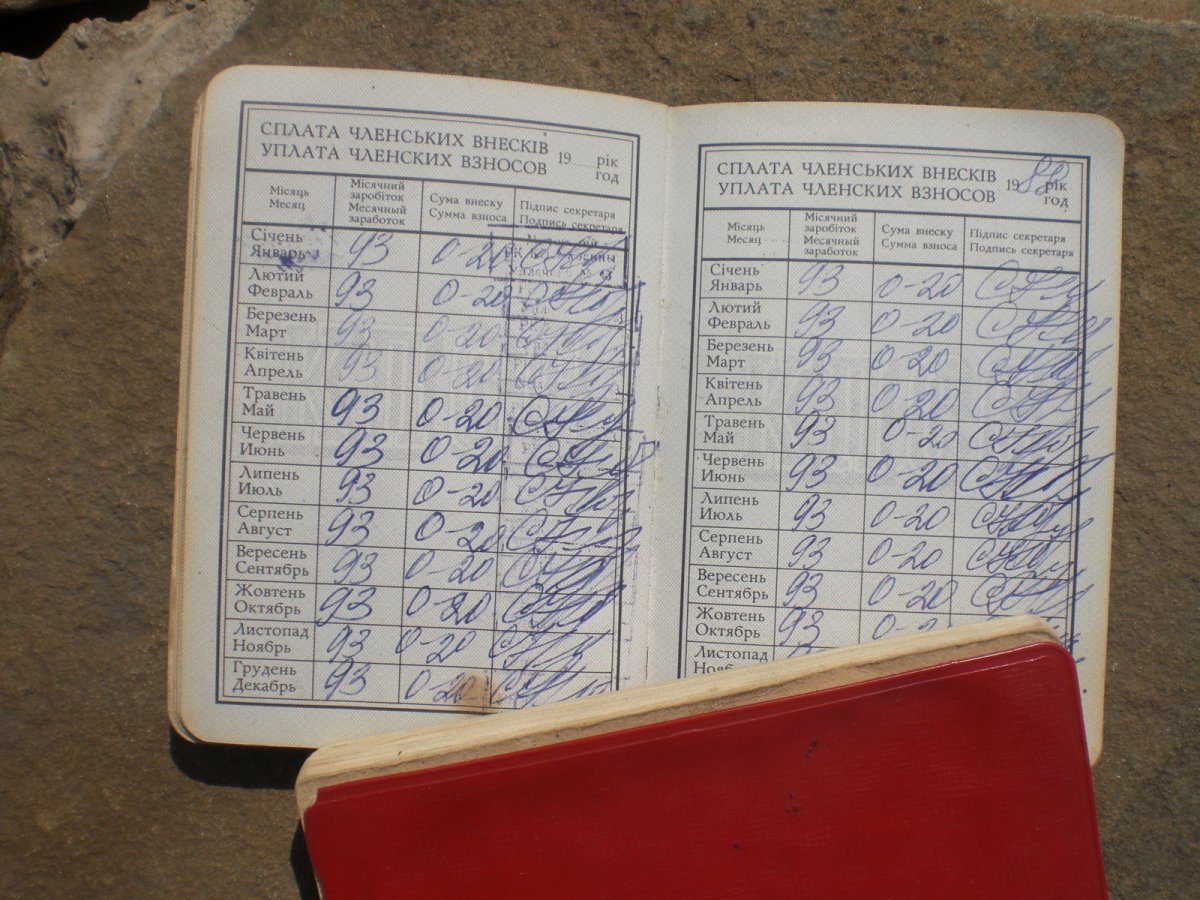 СПЛАТА ЧЛЕНСЬКИХ ВНЕСКІВ
УПЛАТА ЧЛЕНСКИХ ВЗНОСОВ
19 рік
год
Місяць
Месяц
Місячний
заробіток
Месячный
заработок
Сума внеску
Сумма взноса
Підпис секретаря
Подпись секретаря
Січень
Январь
93 0-20
Лютий
Февраль
93 0-20
Березень
Март
93 0-20
Квітень
Апрель
93 0-20
Травень
Май
93 0-20
Червень
Июнь
93 0-20
Липень
Июль
93 0-20
Серпень
Август
93 0-20
Вересень
Сентябрь
93 0-20
Жовтень
Октябрь
93 0-20
Листопад
Ноябрь
93 0-20
Грудень
Декабрь
93 0-20
СПЛАТА ЧЛЕНСЬКИХ ВНЕСКІВ
УПЛАТА ЧЛЕНСКИХ ВЗНОСОВ
19 рік
год
Місяць
Месяц
Місячний
заробіток
Месячный
заработок
Сума внеску
Сумма взноса
Підпис секретаря
Подпись секретаря
Січень
Январь
93 0-20
Лютий
Февраль
93 0-20
Березень
Март
93 0-20
Квітень
Апрель
93 0-20
Травень
Май
93 0-20
Червень
Июнь
93 0-20
Липень
Июль
93 0-20
Серпень
Август
93 0-20
Вересень
Сентябрь
93 0-20
Жовтень
Октябрь
93
Листопад